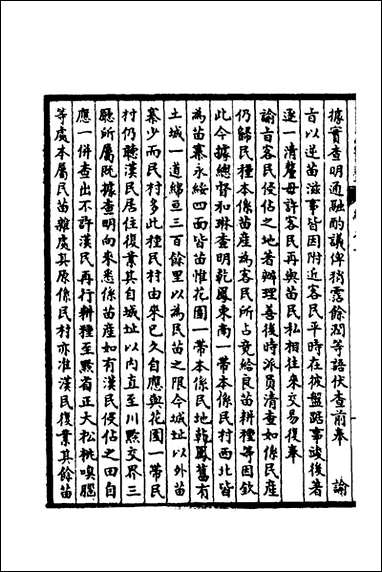 據實查明通融酌議俾稍霑餘潤等語伏查前奉 諭
旨以逆苗滋事皆因附近客民平時在彼盤踞事竣後著
逐一清釐毋許客民再與苗民私相往來交易復奉
諭旨客民侵佔之地著辦理善後時派員清查如係民產
仍歸民種本係苗產為客民所占竟給良苗耕種等因欽
此今據總督和琳查明乾鳳東南一帶本係民村西北皆
為苗寨永綏四面皆苗惟花園一帶本係民地乾鳳舊有
土城一道綿亘三百餘里以為民苗之限今城址以外苗
寨少而民村多此種民村由來已久自應與花園一帶民
村仍聽漢民居住復業其自城址以內直至川黔交界三
廳所屬既據查明向來悉係苗產如有漢民侵佔之田自
應一併查出不許漢民再行耕種至黔省正大松桃嗅腦
等處本屬民苗雜處其原係民村亦准漢民復業其餘苗